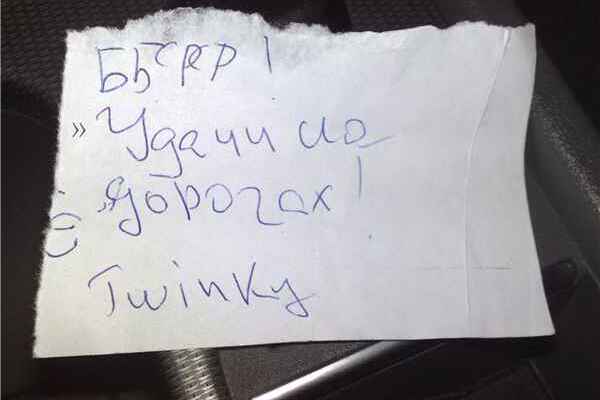 ББРРР!
» Удачи на
дорогах!
Twinky